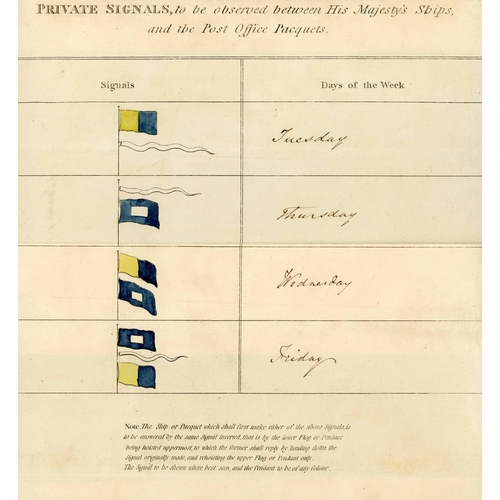 PRIVATE SIGNALS, to be observed between His Majesty's Ships,
and the Post Office Pacquets.
Signals Days of the Week
Tuesday
Thursday
Wednesday
Friday
Note. The Ship or Pacquet which shall first make either of the above Signals, is
to be answered by the same Signal inverted, that is by the lower Flag or Pendant
being hoisted uppermost, to which the former shall reply by hauling down the
Signal originally made, and rehoisting the upper Flag or Pendant only.
The Signal to be shown where best seen, and the Pendant to be of any Colour.